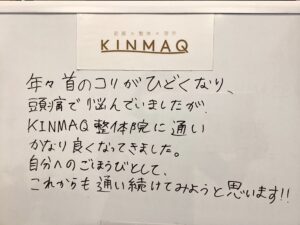 KINMAQ
年々首のコリがひどくなり、
頭痛で悩んでいましたが
KINMAQ整体院に通い
かなり良くなってきました。
自分へのごほうびとして、
これからも通い続けてみようと思います!!